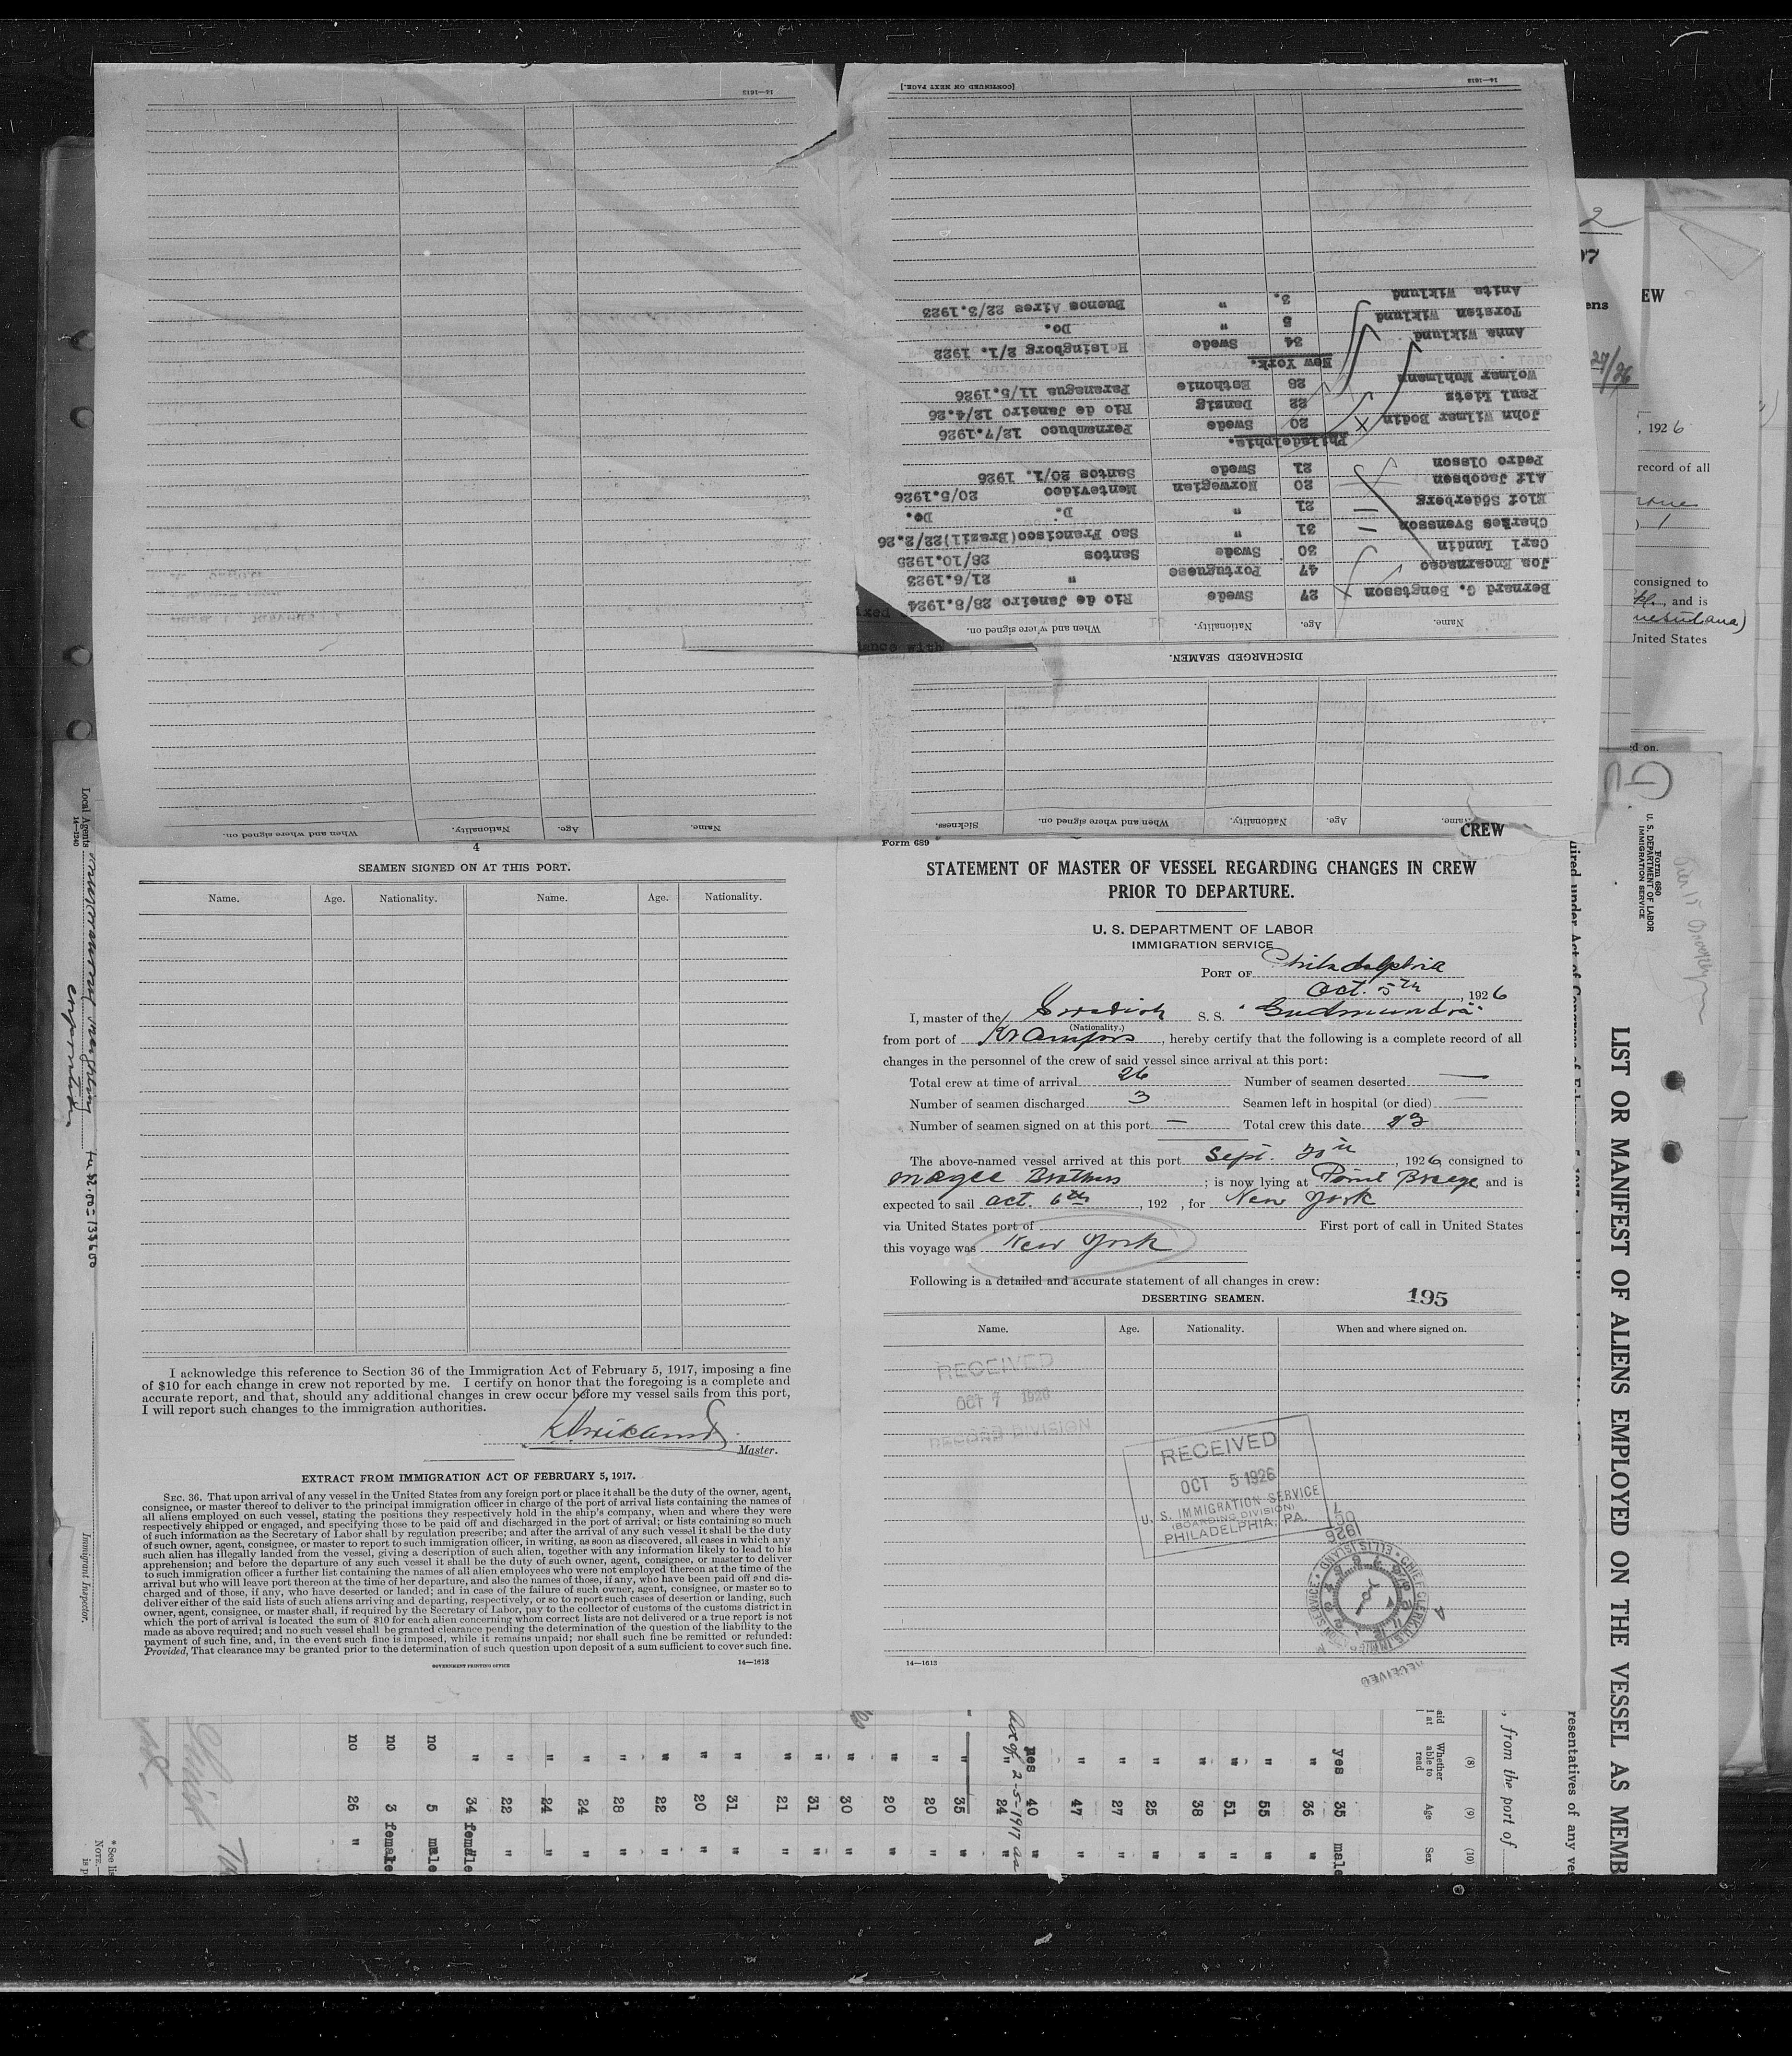 CREW
Form 689
STATEMENT OF MASTER OF VESSEL REGARDING CHANGES IN CREW
PRIOR TO DEPARTURE.
U. S. DEPARTMENT OF LABOR
IMMIGRATION SERVICE
PORT OF Philadelphia
Oct. 5th, 1926
I, master of the Swedish S. S. "Gudmundra"
(Nationality.)
from port of Kramfors, hereby certify that the following is a complete record of all
changes in the personnel of the crew of said vessel since arrival at this port:
Total crew at time of arrival 26 Number of seamen deserted —
Number of seamen discharged 3 Seamen left in hospital (or died) —
Number of seamen signed on at this port — Total crew this date 23
The above-named vessel arrived at this port Sept. 30th, 1926, consigned to
Magee Brothers; is now lying at Point Breeze, and is
expected to sail Oct. 6th, 192 , for New York
via United States port of First port of call in United States
this voyage was New York
Following is a detailed and accurate statement of all changes in crew:
DESERTING SEAMEN. 195
Name. Age. Nationality. When and where signed on.
RECEIVED
OCT 7 1926
RECORD DIVISION
RECEIVED
OCT 5 1926
U. S. IMMIGRATION SERVICE
(BOARDING DIVISION)
PHILADELPHIA, PA.
14—1613
4
SEAMEN SIGNED ON AT THIS PORT.
Name. Age. Nationality. Name. Age. Nationality.
I acknowledge this reference to Section 36 of the Immigration Act of February 5, 1917, imposing a fine
of $10 for each change in crew not reported by me. I certify on honor that the foregoing is a complete and
accurate report, and that, should any additional changes in crew occur before my vessel sails from this port,
I will report such changes to the immigration authorities.
Master.
EXTRACT FROM IMMIGRATION ACT OF FEBRUARY 5, 1917.
SEC. 36. That upon arrival of any vessel in the United States from any foreign port or place it shall be the duty of the owner, agent,
consignee, or master thereof to deliver to the principal immigration officer in charge of the port of arrival lists containing the names of
all aliens employed on such vessel, stating the positions they respectively hold in the ship's company, when and where they were
respectively shipped or engaged, and specifying those to be paid off and discharged in the port of arrival; or lists containing so much
of such information as the Secretary of Labor shall by regulation prescribe; and after the arrival of any such vessel it shall be the duty
of such owner, agent, consignee, or master to report to such immigration officer, in writing, as soon as discovered, all cases in which any
such alien has illegally landed from the vessel, giving a description of such alien, together with any information likely to lead to his
apprehension; and before the departure of any such vessel it shall be the duty of such owner, agent, consignee, or master to deliver
to such immigration officer a further list containing the names of all alien employees who were not employed thereon at the time of the
arrival but who will leave port thereon at the time of her departure, and also the names of those, if any, who have been paid off and dis-
charged and of those, if any, who have deserted or landed; and in case of the failure of such owner, agent, consignee, or master so to
deliver either of the said lists of such aliens arriving and departing, respectively, or so to report such cases of desertion or landing, such
owner, agent, consignee, or master shall, if required by the Secretary of Labor, pay to the collector of customs of the customs district in
which the port of arrival is located the sum of $10 for each alien concerning whom correct lists are not delivered or a true report is not
made as above required; and no such vessel shall be granted clearance pending the determination of the question of the liability to the
payment of such fine, and, in the event such fine is imposed, while it remains unpaid; nor shall such fine be remitted or refunded:
Provided, That clearance may be granted prior to the determination of such question upon deposit of a sum sufficient to cover such fine.
GOVERNMENT PRINTING OFFICE 14—1613
Name. Age. Nationality. When and where signed on. Sickness.
DISCHARGED SEAMEN.
Name. Age. Nationality. When and where signed on.
Bernard G. Bengtsson 27 Swede Rio de Janeiro 28/8.1924
Jos Encarnacao 47 Portuguese " 21/6.1923
Carl Lundin 30 Swede Santos 28/10.1925
Charles Svensson 31 " Sao Francisco(Brazil)22/2.26
Elof Söderberg 21 " D. Do.
Alf Jacobsen 20 Norwegian Montevideo 20/5.1926
Pedro Olsson 21 Swede Santos 20/1. 1926
Philadelphia.
John Wilmer Bodin 20 Swede Pernambuco 12/7.1926
Paul Lietz 22 Danzig Rio de Janeiro 12/4.26
Wolmar Muhlmann 26 Esthonie Paranagua 11/5.1926
New York.
Anna Wiklund 34 Swede Helsingborg 2/1. 1922
Torsten Wiklund 5 " Do.
Anita Wiklund 3. " Buenos Aires 22/3.1923
[CONTINUED ON NEXT PAGE.]
14—1613
Name. Age. Nationality. When and where signed on.
14—1613
Form 680
U. S. DEPARTMENT OF LABOR
IMMIGRATION SERVICE
LIST OR MANIFEST OF ALIENS EMPLOYED ON THE VESSEL AS MEMB
, from the port of
resentatives of any ves
(8) (9) (10)
Whether able to read Age Sex
yes 35 male
" 36 "
" 55 "
" 51 "
" 38 "
" 25 "
" 27 "
" 47 "
yes 40 "
" 24 "
" 35 "
" 20 "
" 20 "
" 30 "
" 31 "
" 21 "
" 31 "
" 20 "
" 22 "
" 28 "
" 24 "
" 24 "
" 22 "
" 34 female
no 5 male
no 3 female
no 26 "
Local Agents
14—1240
Immigrant Inspector.
EW
, 1926
record of all
consigned to
and is
United States